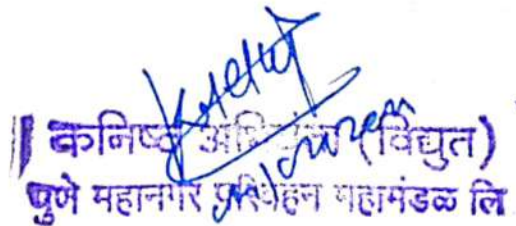 कनिष्ठ अभियंता (विद्युत)
पुणे महानगर परिवहन महामंडळ लि